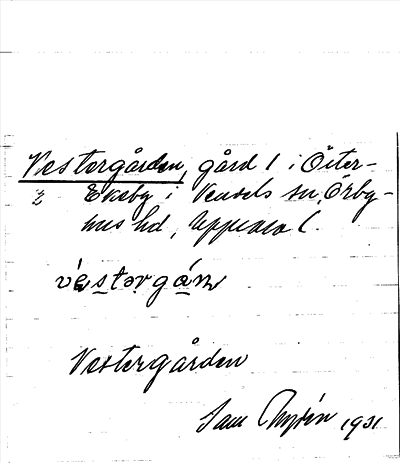 Vestergården, gård 1 i Öster-
Ekeby i Vendels sn, Örby-
hus hd, Uppsala l.
vèstərgán
Vestergården
1931